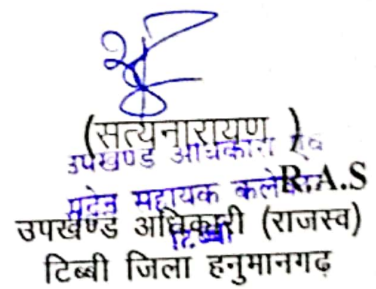 (सत्यनारायण )
उपखण्ड अधिकारी एवं
पदेन सहायक कलेक्टर
R.A.S
उपखण्ड अधिकारी (राजस्व)
टिब्बी
टिब्बी जिला हनुमानगढ़